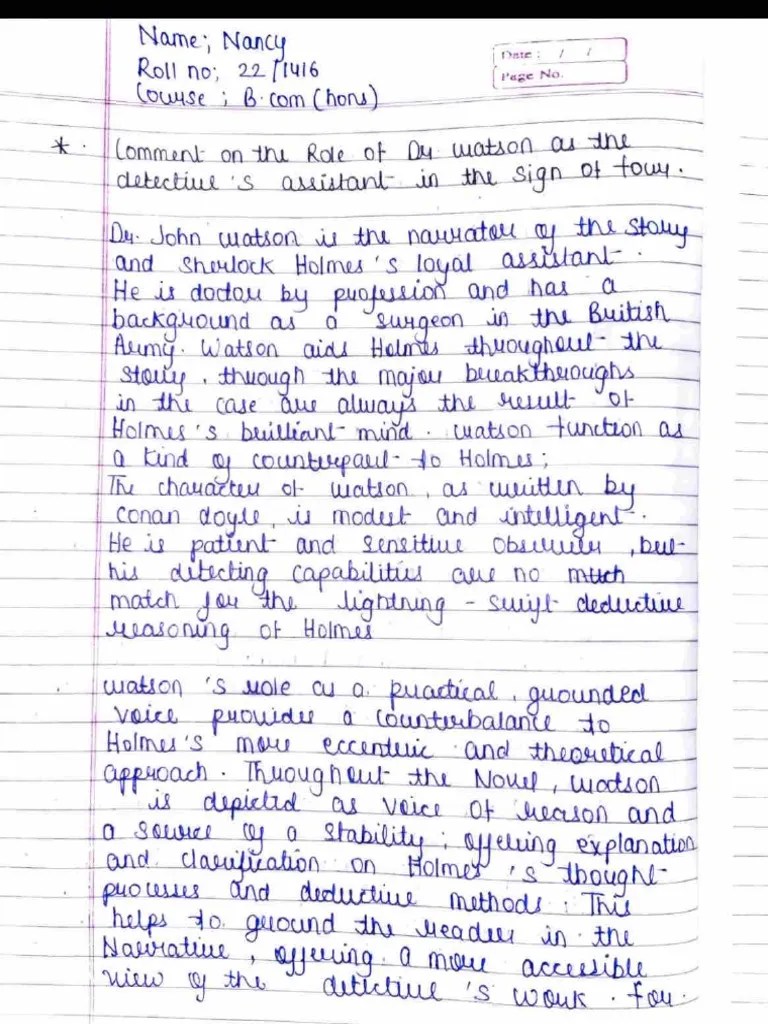 Name; Nancy
Roll no; 22/1416
Course; B.com (hons)
Date: / /
Page No.
* Comment on the Role of Dr Watson as the
detective's assistant in the Sign of four.
Dr. John Watson is the narrator of the story
and Sherlock Holmes's loyal assistant.
He is doctor by profession and has a
background as a surgeon in the British
Army. Watson aids Holmes throughout the
story, through the major breakthroughs
in the case are always the result of
Holmes's brilliant mind. Watson function as
a kind of counterpart to Holmes;
The character of Watson, as written by
Conan doyle, is modest and intelligent.
He is patient and sensitive observer, but
his detecting capabilities are no much
match for the lightning - swift deductive
reasoning of Holmes
Watson's role as a practical, grounded
voice provides a counterbalance to
Holmes's more eccentric and theoretical
approach. Throughout the Novel, Watson
is depicted as voice of reason and
a source of a stability; offering explanation
and clarification on Holmes's thought
processes and deductive methods. This
helps to ground the reader in the
Narrative, offering a more accessible
view of the detective's work. For